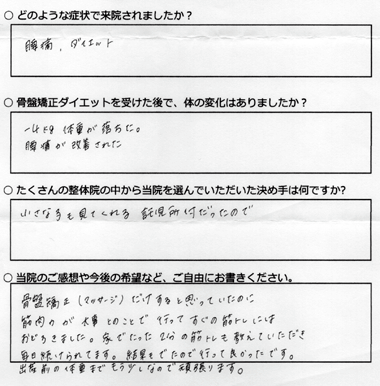 ○ どのような症状で来院されましたか?
腰痛、ダイエット
○ 骨盤矯正ダイエットを受けた後で、体の変化はありましたか?
体重が落ちた。
腰痛が改善された
○ たくさんの整体院の中から当院を選んでいただいた決め手は何ですか?
小さな子も見てくれる 託児所付だったので
○ 当院のご感想や今後の希望など、ご自由にお書きください。
骨盤矯正(マッサージ)だけすると思っていたのに
筋肉が大事とのことで 行ってすぐの筋トレには
おどろきました。家でたった2分の筋トレも教えていただき
毎日続けられてます。結果もでたので行って良かったです。
出産前の体重まで もう少しなので頑張ります。